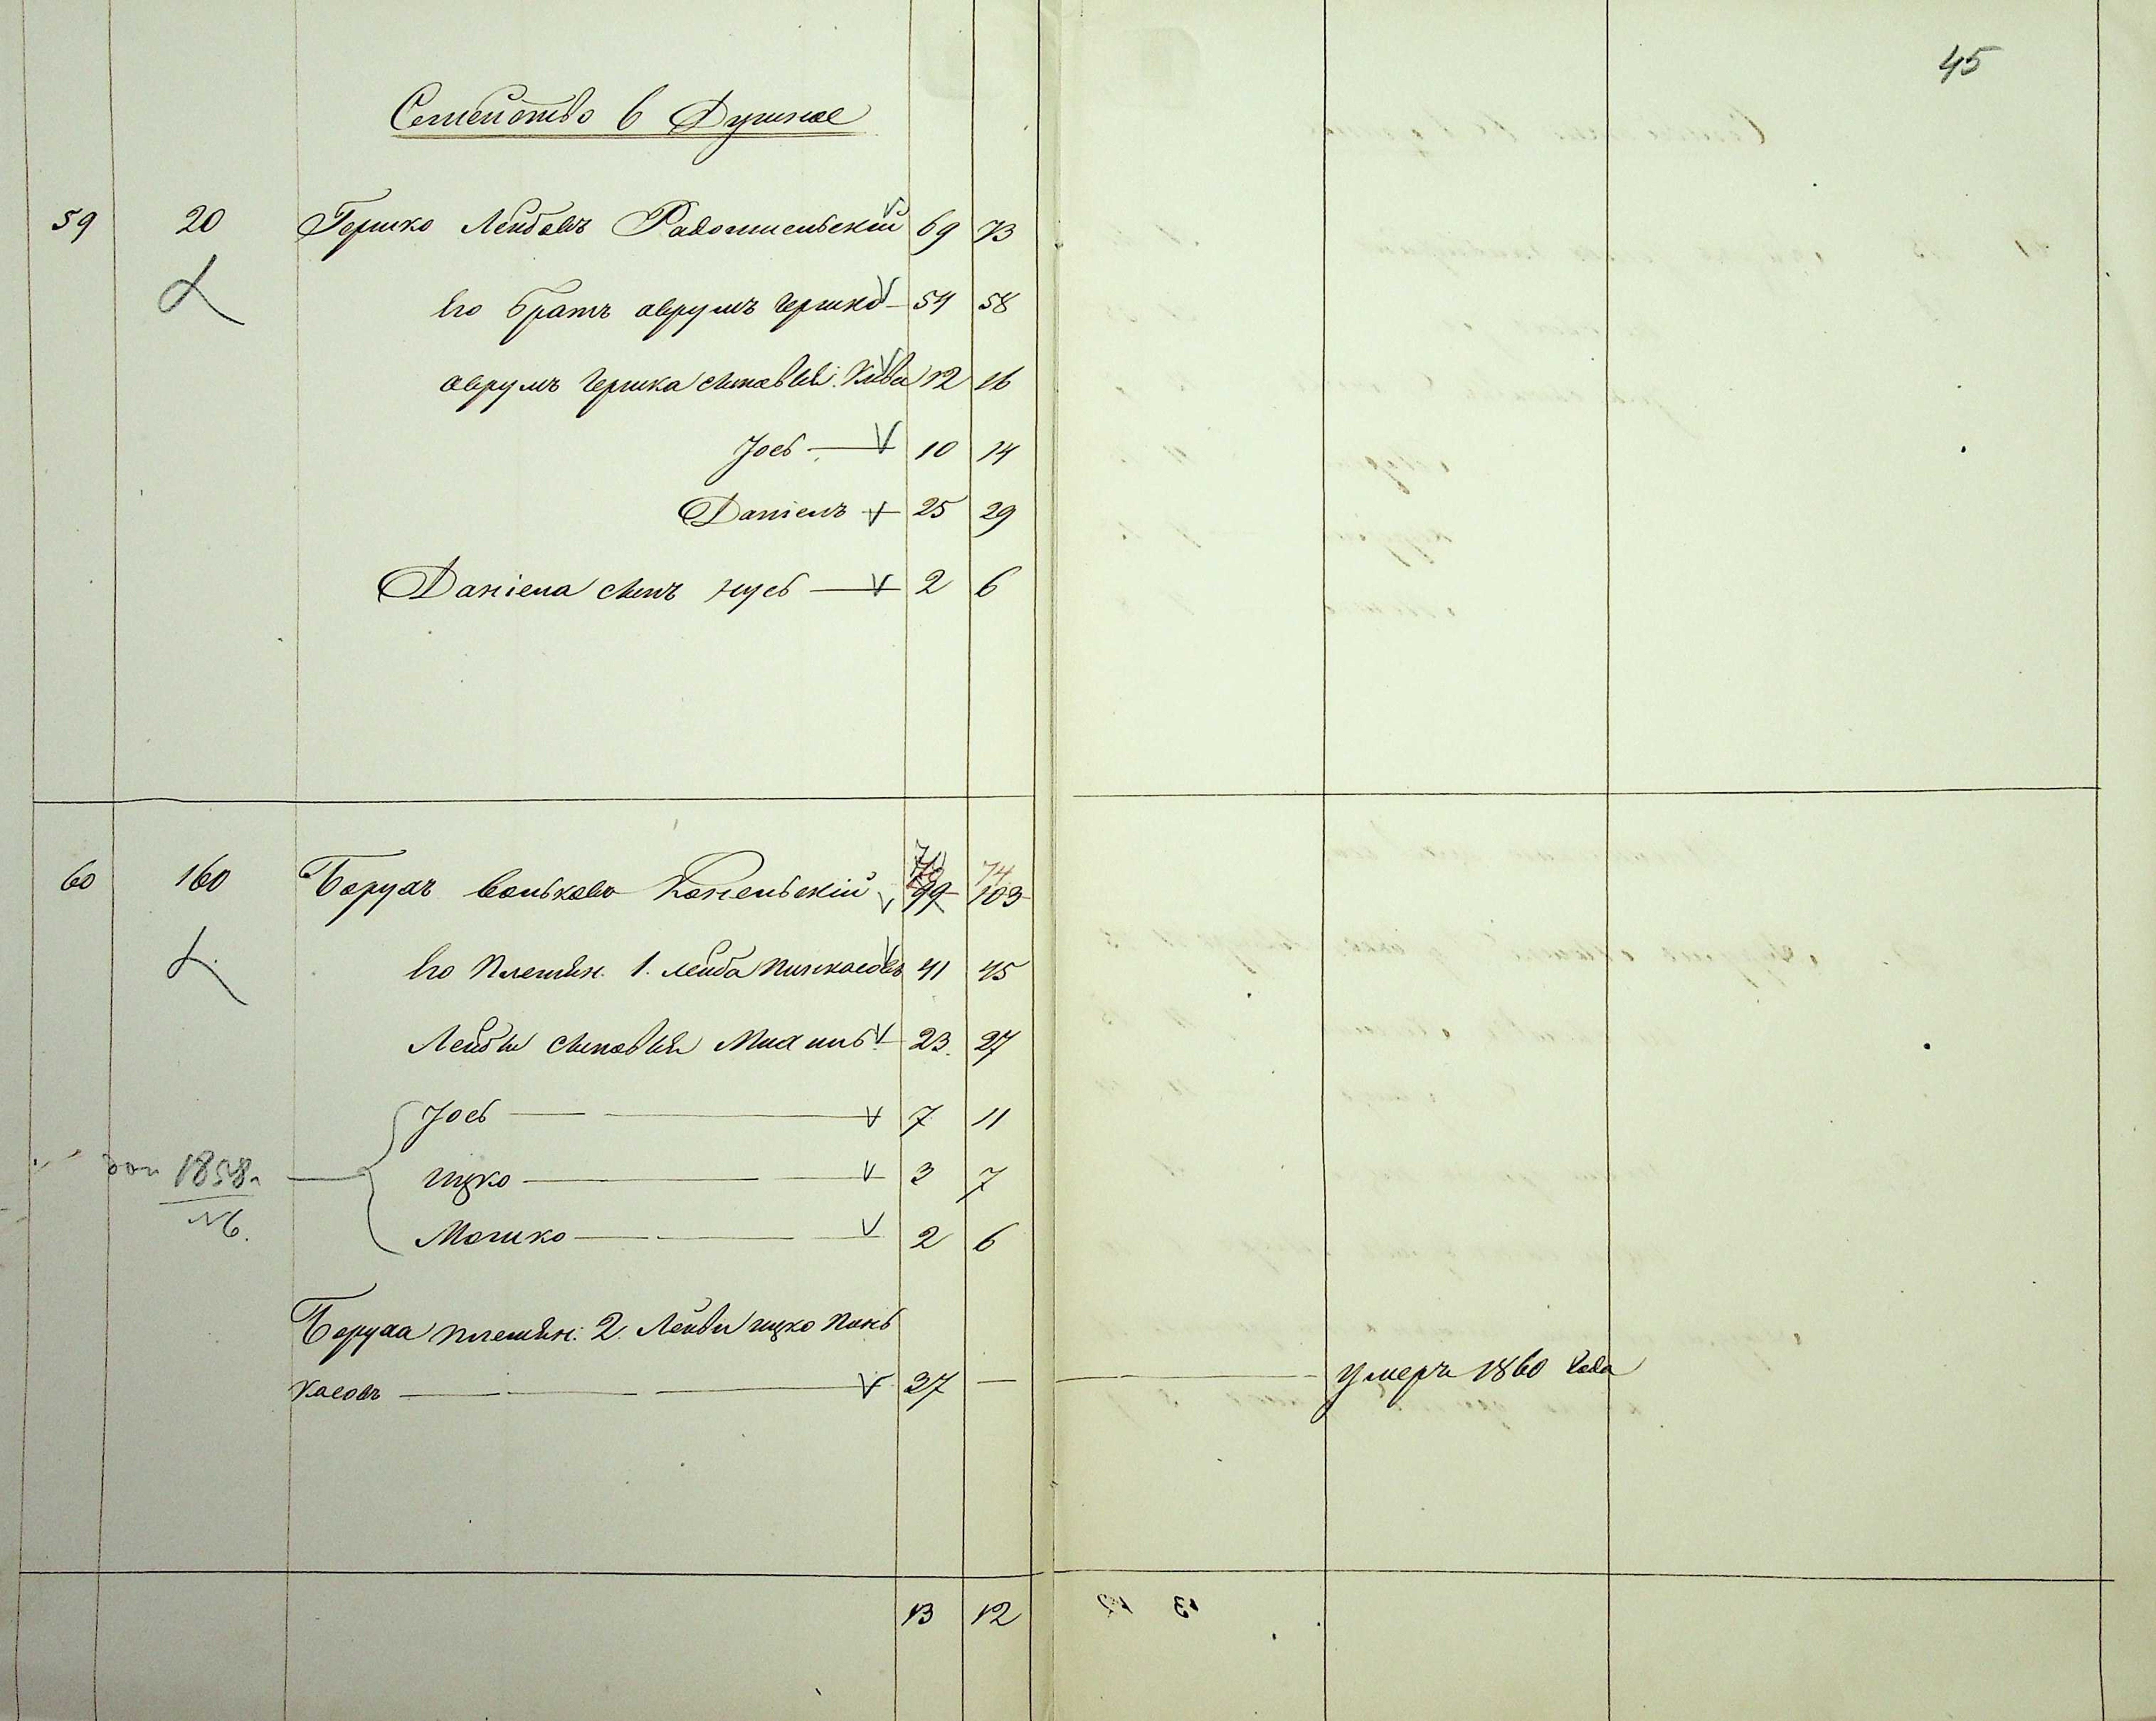 45
Семейство 6 Душное
59 20 Гершко Лейбовъ Радомысльскій 69 73
Его братъ аврумъ гершко 54 58
аврумъ гершка сыновья: Кива 12 16
Іось 10 14
Даніель 25 29
Даніела сынъ нусь 2 6
60 160 Борухъ Вольковъ Каневскій 70 99 74 103
Его племян. 1. лейба пинхасовъ 41 45
Лейбы сыновья Михель 23. 27
Іось 7 11
ицко 3 7
доп 1858 г.
№ 6.
Мошко 2 6
Боруха племян: 2. Лейви ицко пинь
хасовъ 27 — умеръ 1860 года
13 12